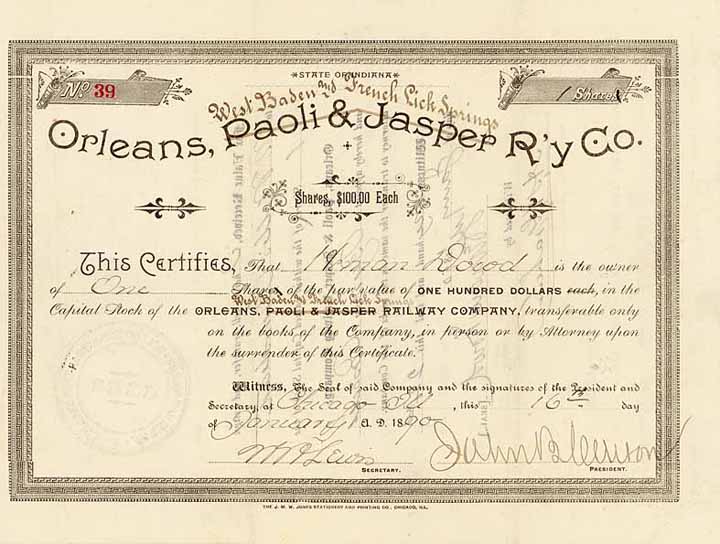 *STATE OF INDIANA*
No. 39
1 Shares
West Baden and French Lick Springs
Orleans, Paoli & Jasper R'y Co.
Shares, $100.00 Each
This Certifies, That Hyman Dowd is the owner
of One Shares of the par value of ONE HUNDRED DOLLARS each, in the
West Baden and French Lick Springs
Capital Stock of the ORLEANS, PAOLI & JASPER RAILWAY COMPANY, transferable only
on the books of the Company, in person or by Attorney upon
the surrender of this Certificate.
Witness, The Seal of said Company and the signatures of the President and
Secretary, at Chicago Ill, this 16th day
of January A.D. 1890
SECRETARY.
PRESIDENT.
THE J. M. W. JONES STATIONERY AND PRINTING CO., CHICAGO, ILL.